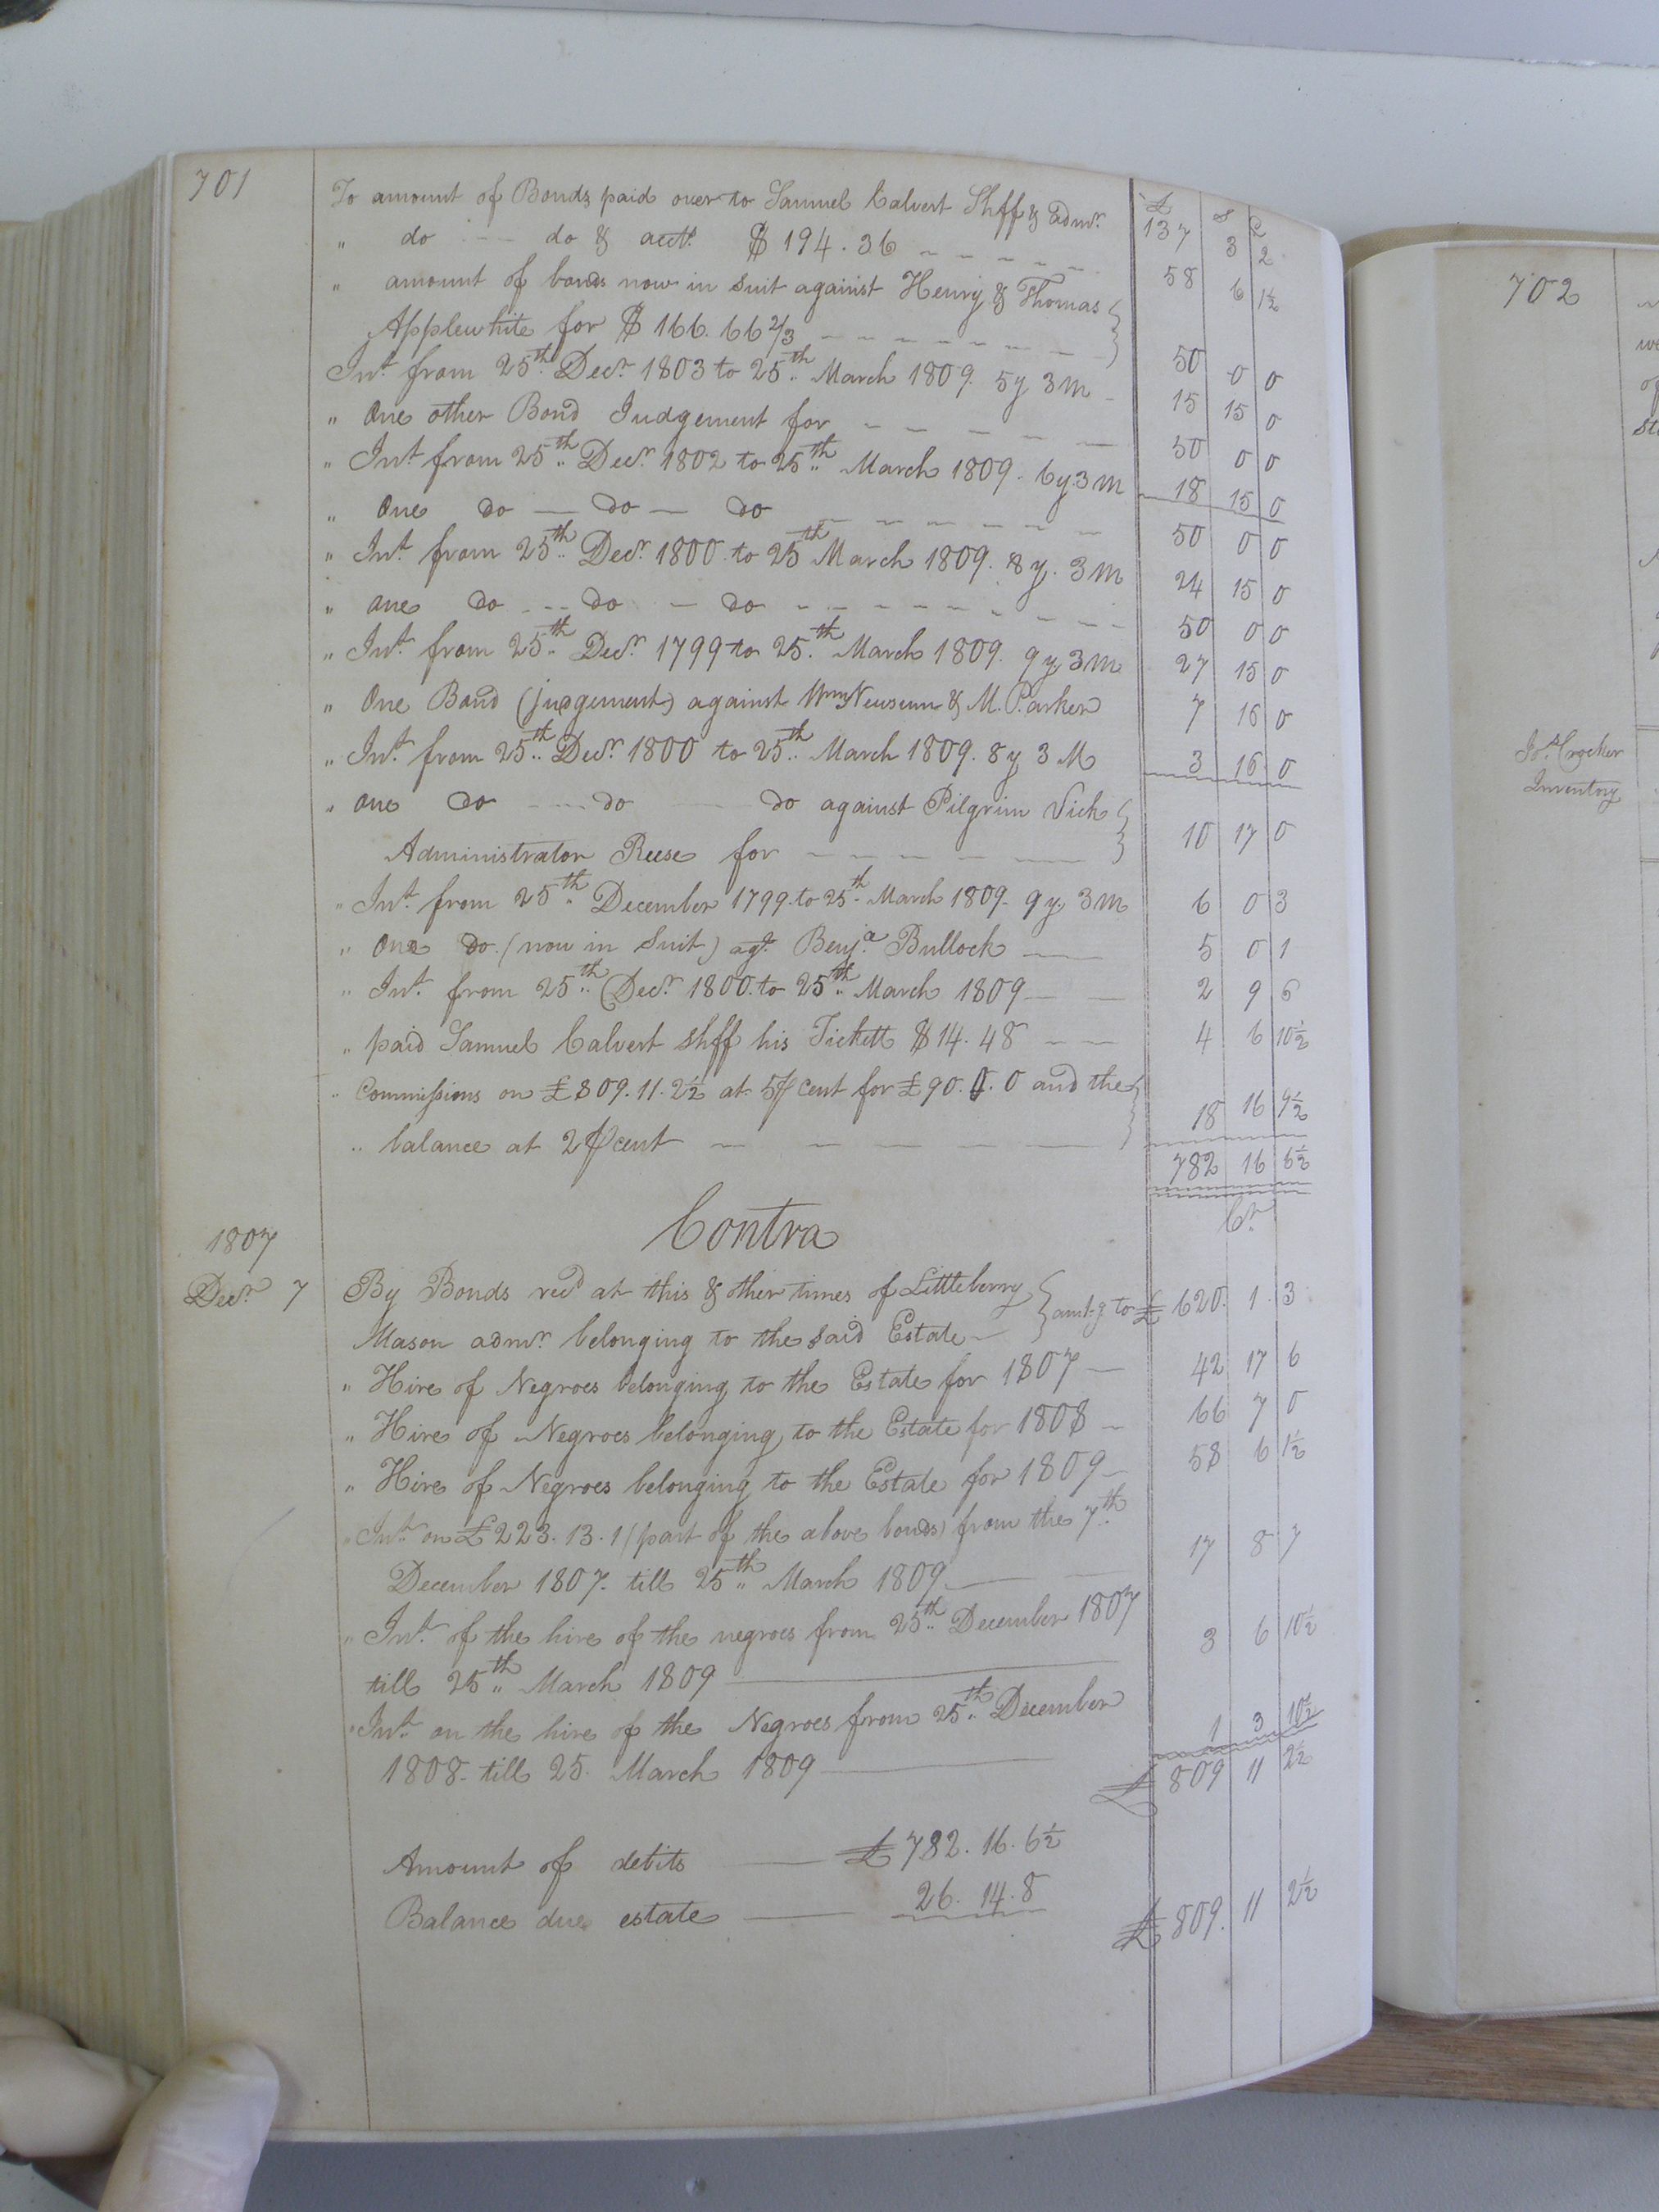 701
£ s d
To amount of Bonds paid over to Samuel Calvert Shff & admr. 137 3 2
" do -- do & acct. $ 194.36 58 6 1½
" amount of bonds now in Suit against Henry & Thomas
Applewhite for $ 166.66 2/3 50 0 0
Int. from 25th Decr. 1803 to 25th March 1809. 5y 3m 15 15 0
" One other Bond Judgement for 50 0 0
" Int. from 25th Decr. 1802 to 25th March 1809. 6y 3m 18 15 0
" One do — do — do 50 0 0
" Int. from 25th Decr. 1800 to 25th March 1809. 8y. 3m 24 15 0
" one do -- do — do 50 0 0
" Int. from 25th Decr. 1799 to 25th March 1809. 9y 3m 27 15 0
" One Bond (judgement) against Wm Newsum & M. Parker 7 16 0
" Int. from 25th Decr. 1800 to 25th March 1809. 8y 3M 3 16 0
" one do --- do — do against Pilgrim Vick
Administrator Reese for 10 17 0
" Int. from 25th December 1799 to 25th March 1809. 9y 3m 6 0 3
" One do. (now in Suit) agt. Benja. Bullock 5 0 1
" Int. from 25th Decr. 1800 to 25th March 1809 2 9 6
" paid Samuel Calvert Shff his Tickett $14.48 4 6 10½
" Commissions on £809.11.2½ at 5 ℔ cent for £90.0.0 and the
" balance at 2 ℔ cent 18 16 9½
782 16 6½
Contra Cr.
1807
Decr. 7 By Bonds recd at this & other times of Littleberry
Mason admr. belonging to the said Estate amtg to £ 620. 1. 3
" Hire of Negroes belonging to the Estate for 1807 42 17 6
" Hire of Negroes belonging to the Estate for 1808 66 7 0
" Hire of Negroes belonging to the Estate for 1809 58 6 1½
" Int. on £223.13.1 (part of the above bonds) from the 7th
December 1807. till 25th March 1809 17 8 7
" Int. of the hire of the negroes from 25th December 1807
till 25th March 1809 3 6 10½
" Int. on the hire of the Negroes from 25th December
1808. till 25. March 1809 1 3 10½
£ 809 11 2½
Amount of debits £782.16.6½
Balance due estate 26.14.8 £ 809. 11 2½
702
Jos. Crocker
Inventory